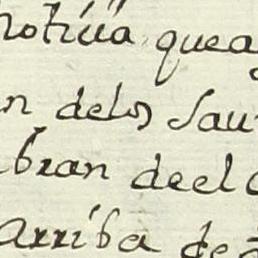 noticia quea
n delos sau
bran deel
arriba de